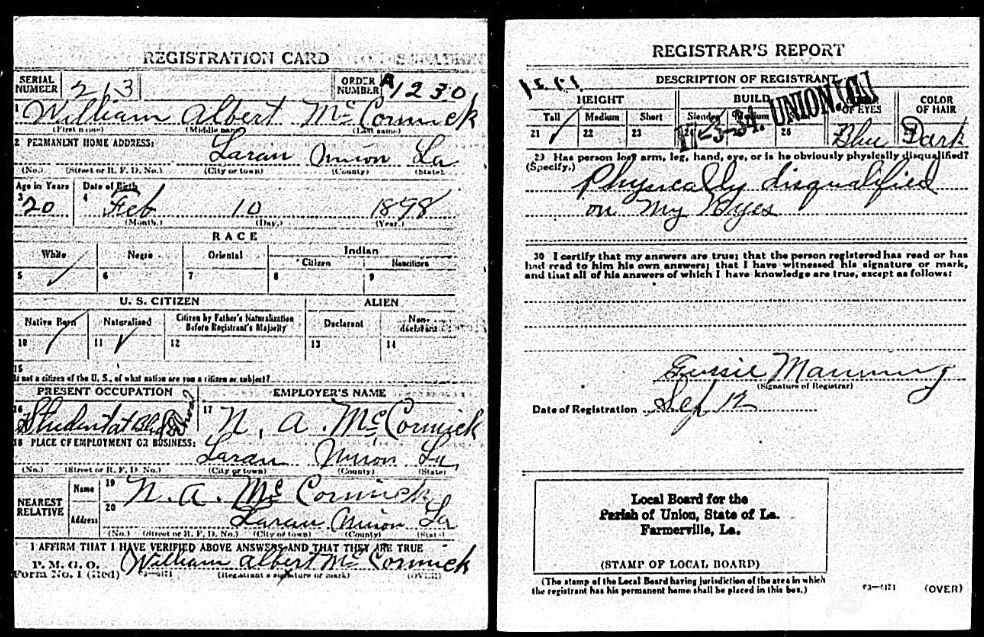 REGISTRATION CARD
SERIAL NUMBER 213
ORDER NUMBER A1230
1 William Albert McCormick
(First name) (Middle name) (Last name)
2 PERMANENT HOME ADDRESS:
Laran Union La
(No.) (Street or R. F. D. No.) (City or town) (County) (State)
Age in Years Date of Birth
3 20 4 Feb 10 1898
(Month.) (Day.) (Year.)
RACE
White Negro Oriental Indian
Citizen Noncitizen
5 / 6 7 8 9
U. S. CITIZEN ALIEN
Native Born Naturalized Citizen by Father's Naturalization Before Registrant's Majority Declarant Non-declarant
10 / 11 ✓ 12 13 14
15
If not a citizen of the U. S., of what nation are you a citizen or subject?
PRESENT OCCUPATION EMPLOYER'S NAME
16 Student at 17 N. A. McCormick
18 PLACE OF EMPLOYMENT OR BUSINESS:
Laran Union La
(No.) (Street or R. F. D. No.) (City or town) (County) (State)
NEAREST RELATIVE
Name 19 N. A. McCormick
Address 20 Laran Union La
(No.) (Street or R. F. D. No.) (City or town) (County) (State)
I AFFIRM THAT I HAVE VERIFIED ABOVE ANSWERS AND THAT THEY ARE TRUE
P. M. G. O.
Form No. 1 (Red) 03-6171 William Albert McCormick
(Registrant's signature or mark) (OVER)
REGISTRAR'S REPORT
DESCRIPTION OF REGISTRANT
HEIGHT BUILD OF EYES COLOR OF HAIR
Tall Medium Short Slender Medium
21 / 22 23 26 Blue Dark
17-3-34. UNION.(A)
29 Has person lost arm, leg, hand, eye, or is he obviously physically disqualified?
(Specify.) Physically disqualified
on my Eyes
30 I certify that my answers are true; that the person registered has read or has
had read to him his own answers; that I have witnessed his signature or mark,
and that all of his answers of which I have knowledge are true, except as follows:
Manning
(Signature of Registrar)
Date of Registration Sep 12
Local Board for the
Parish of Union, State of La.
Farmerville, La.
(STAMP OF LOCAL BOARD)
(The stamp of the Local Board having jurisdiction of the area in which
the registrant has his permanent home shall be placed in this box.)
03-6171 (OVER)